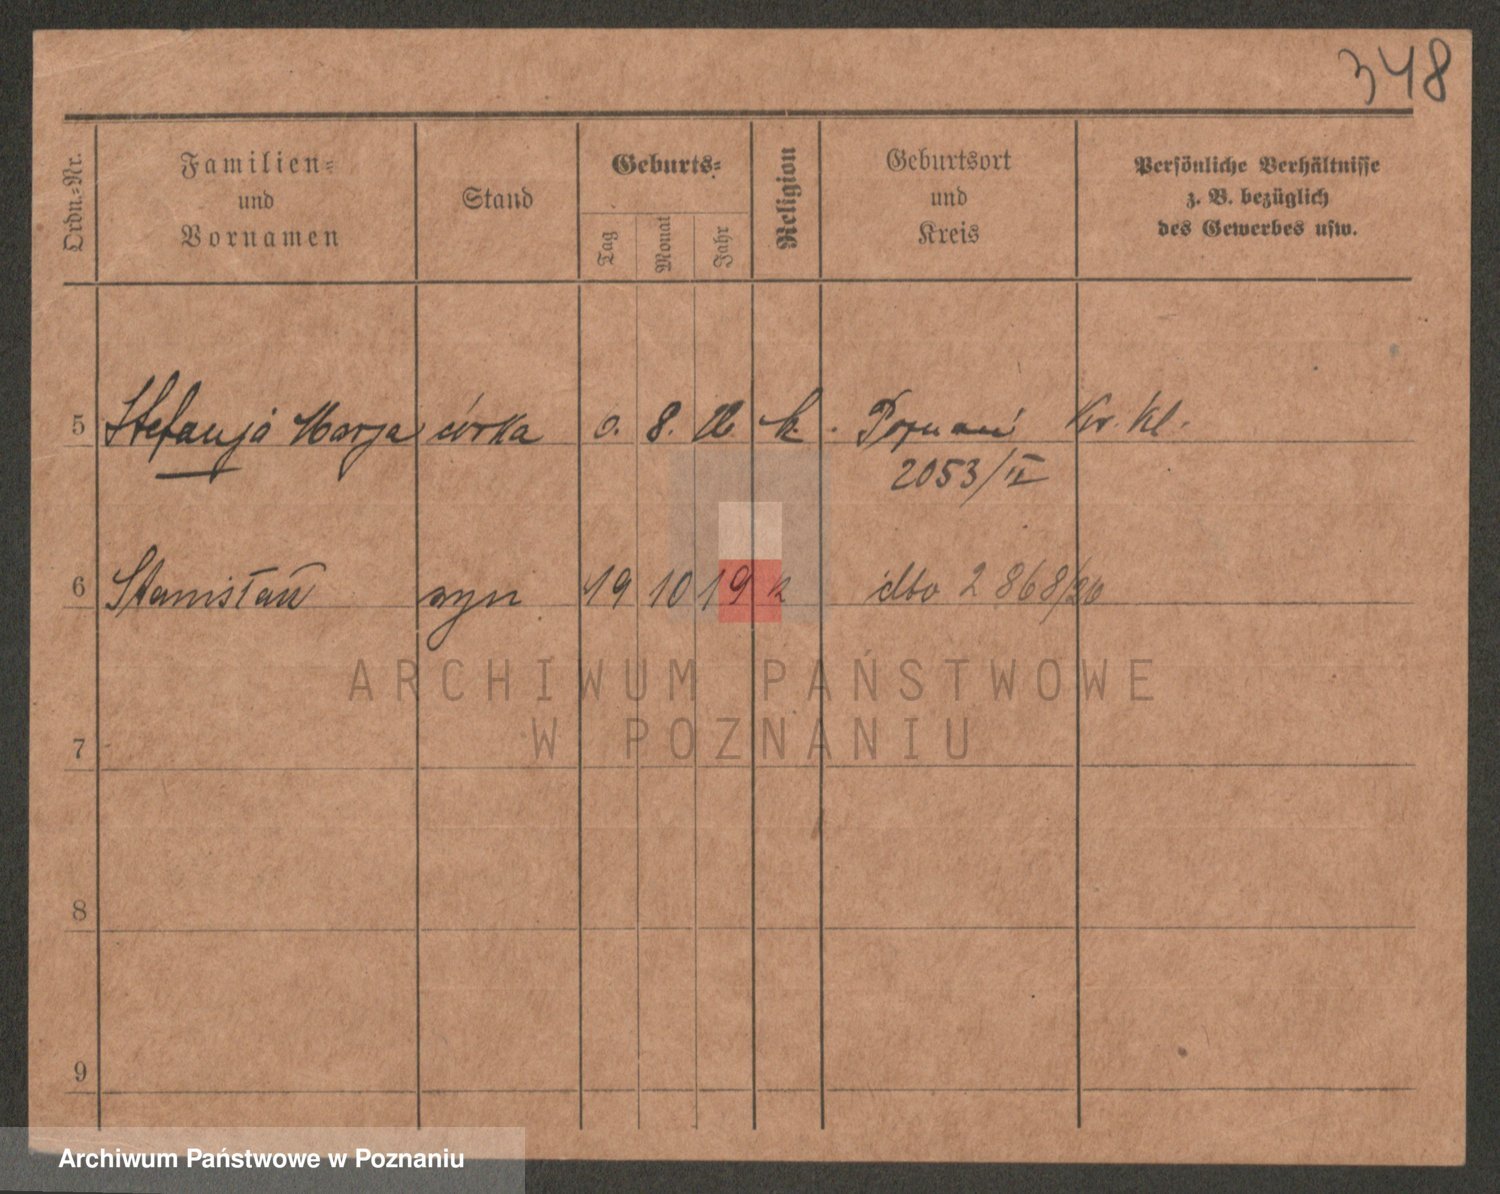 348
Ordn.-Nr.
Familien-
und
Vornamen
Stand
Geburts-
Tag
Monat
Jahr
Religion
Geburtsort
und
Kreis
Persönliche Verhältnisse
z. B. bezüglich
des Gewerbes usw.
5 Stefanja Marja córka 8. k. Poznań Kr. Kl.
2053/II
6 Stanisław syn 19 10 19 k dto 2868/20
ARCHIWUM PAŃSTWOWE
W POZNANIU
7
8
9
Archiwum Państwowe w Poznaniu